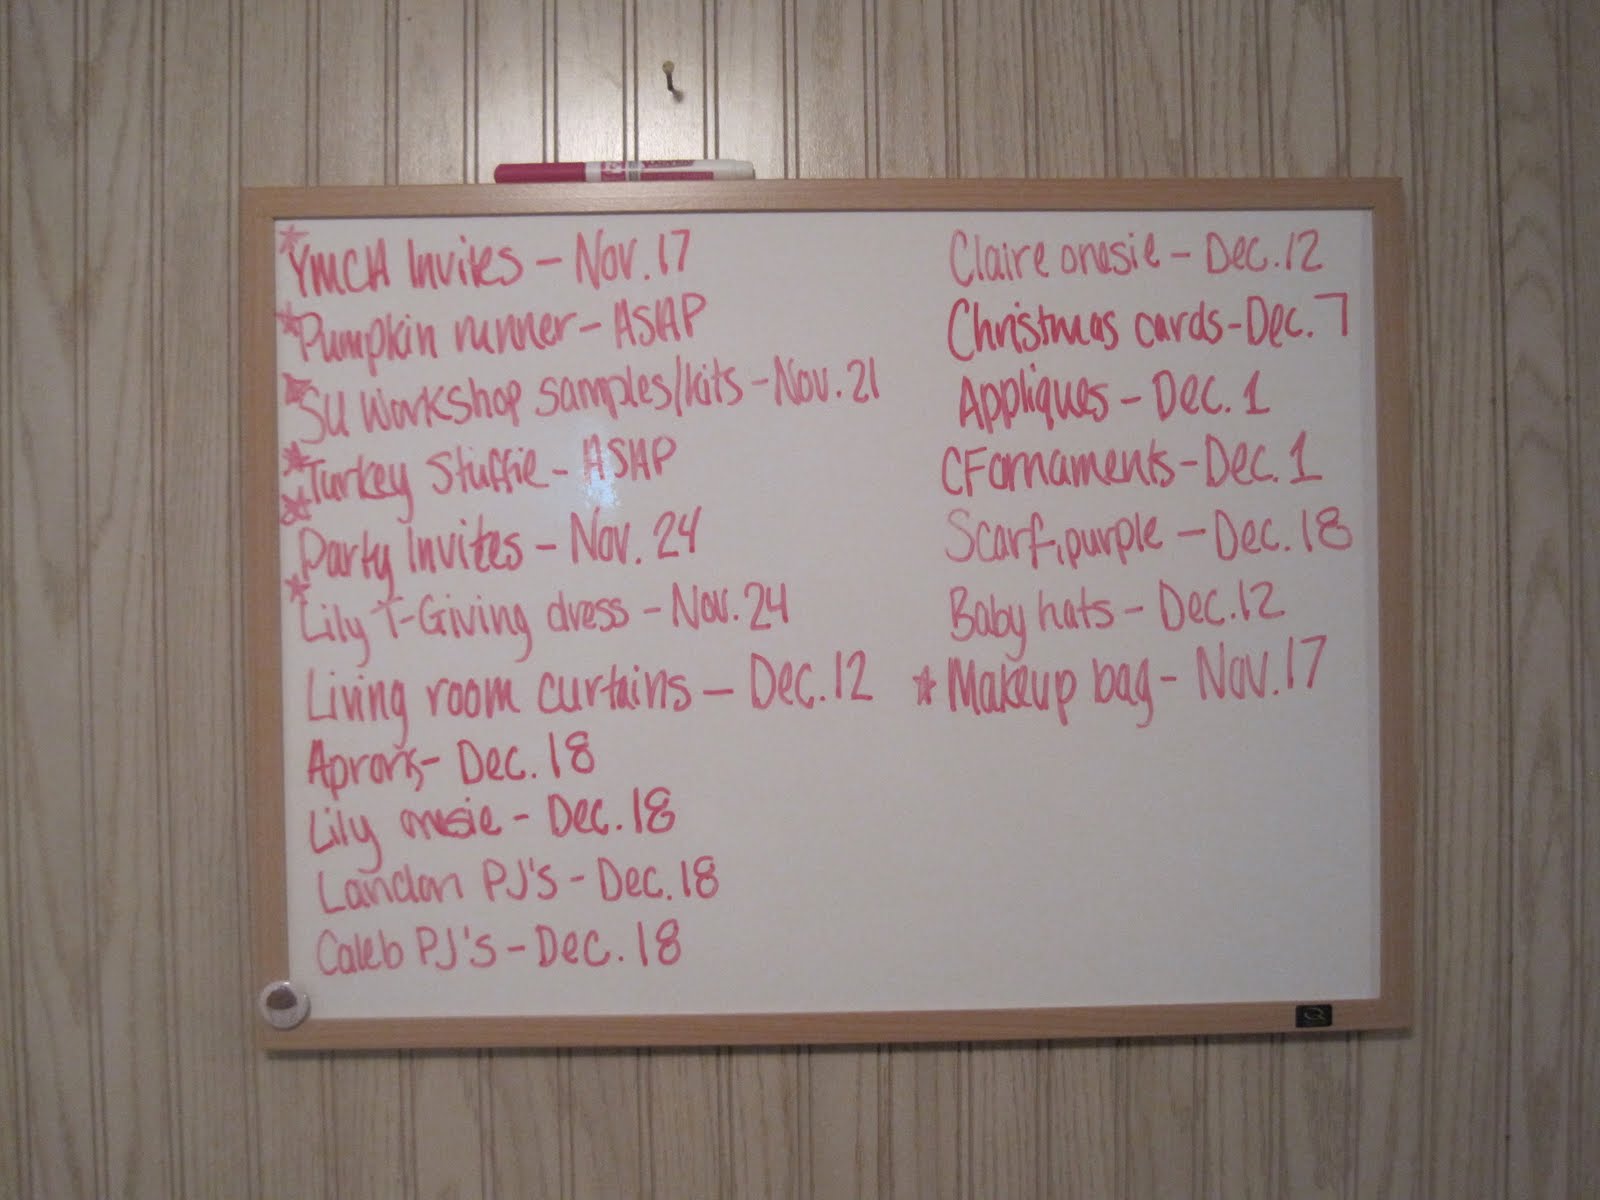 YMCA Invites - Nov. 17
Pumpkin runner - ASAP
SU Workshop samples/kits - Nov. 21
Turkey Stuffie - ASAP
Party Invites - Nov. 24
Lily T-Giving dress - Nov. 24
Living room curtains - Dec. 12
Aprons - Dec. 18
Lily onesie - Dec. 18
Landon PJ's - Dec. 18
Caleb PJ's - Dec. 18
Claire onesie - Dec. 12
Christmas cards - Dec. 7
Appliques - Dec. 1
CF ornaments - Dec. 1
Scarf, purple - Dec. 18
Baby hats - Dec. 12
Makeup bag - Nov. 17